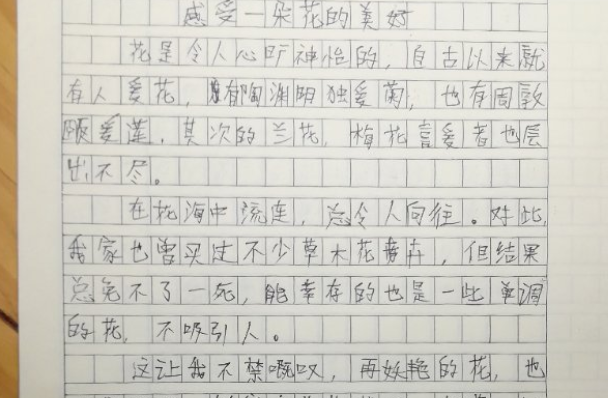 感受一朵花的美好
花是令人心旷神怡的，自古以来就
有人爱花，有陶渊明独爱菊，也有周敦
颐爱莲，其次的兰花，梅花喜爱者也层
出不尽。
在花海中流连，总令人向往。对此，
我家也曾买过不少草木花卉，但结果
总免不了一死，能幸存的也是一些单调
的花，不吸引人。
这让我不禁嘅叹，再妖艳的花，也